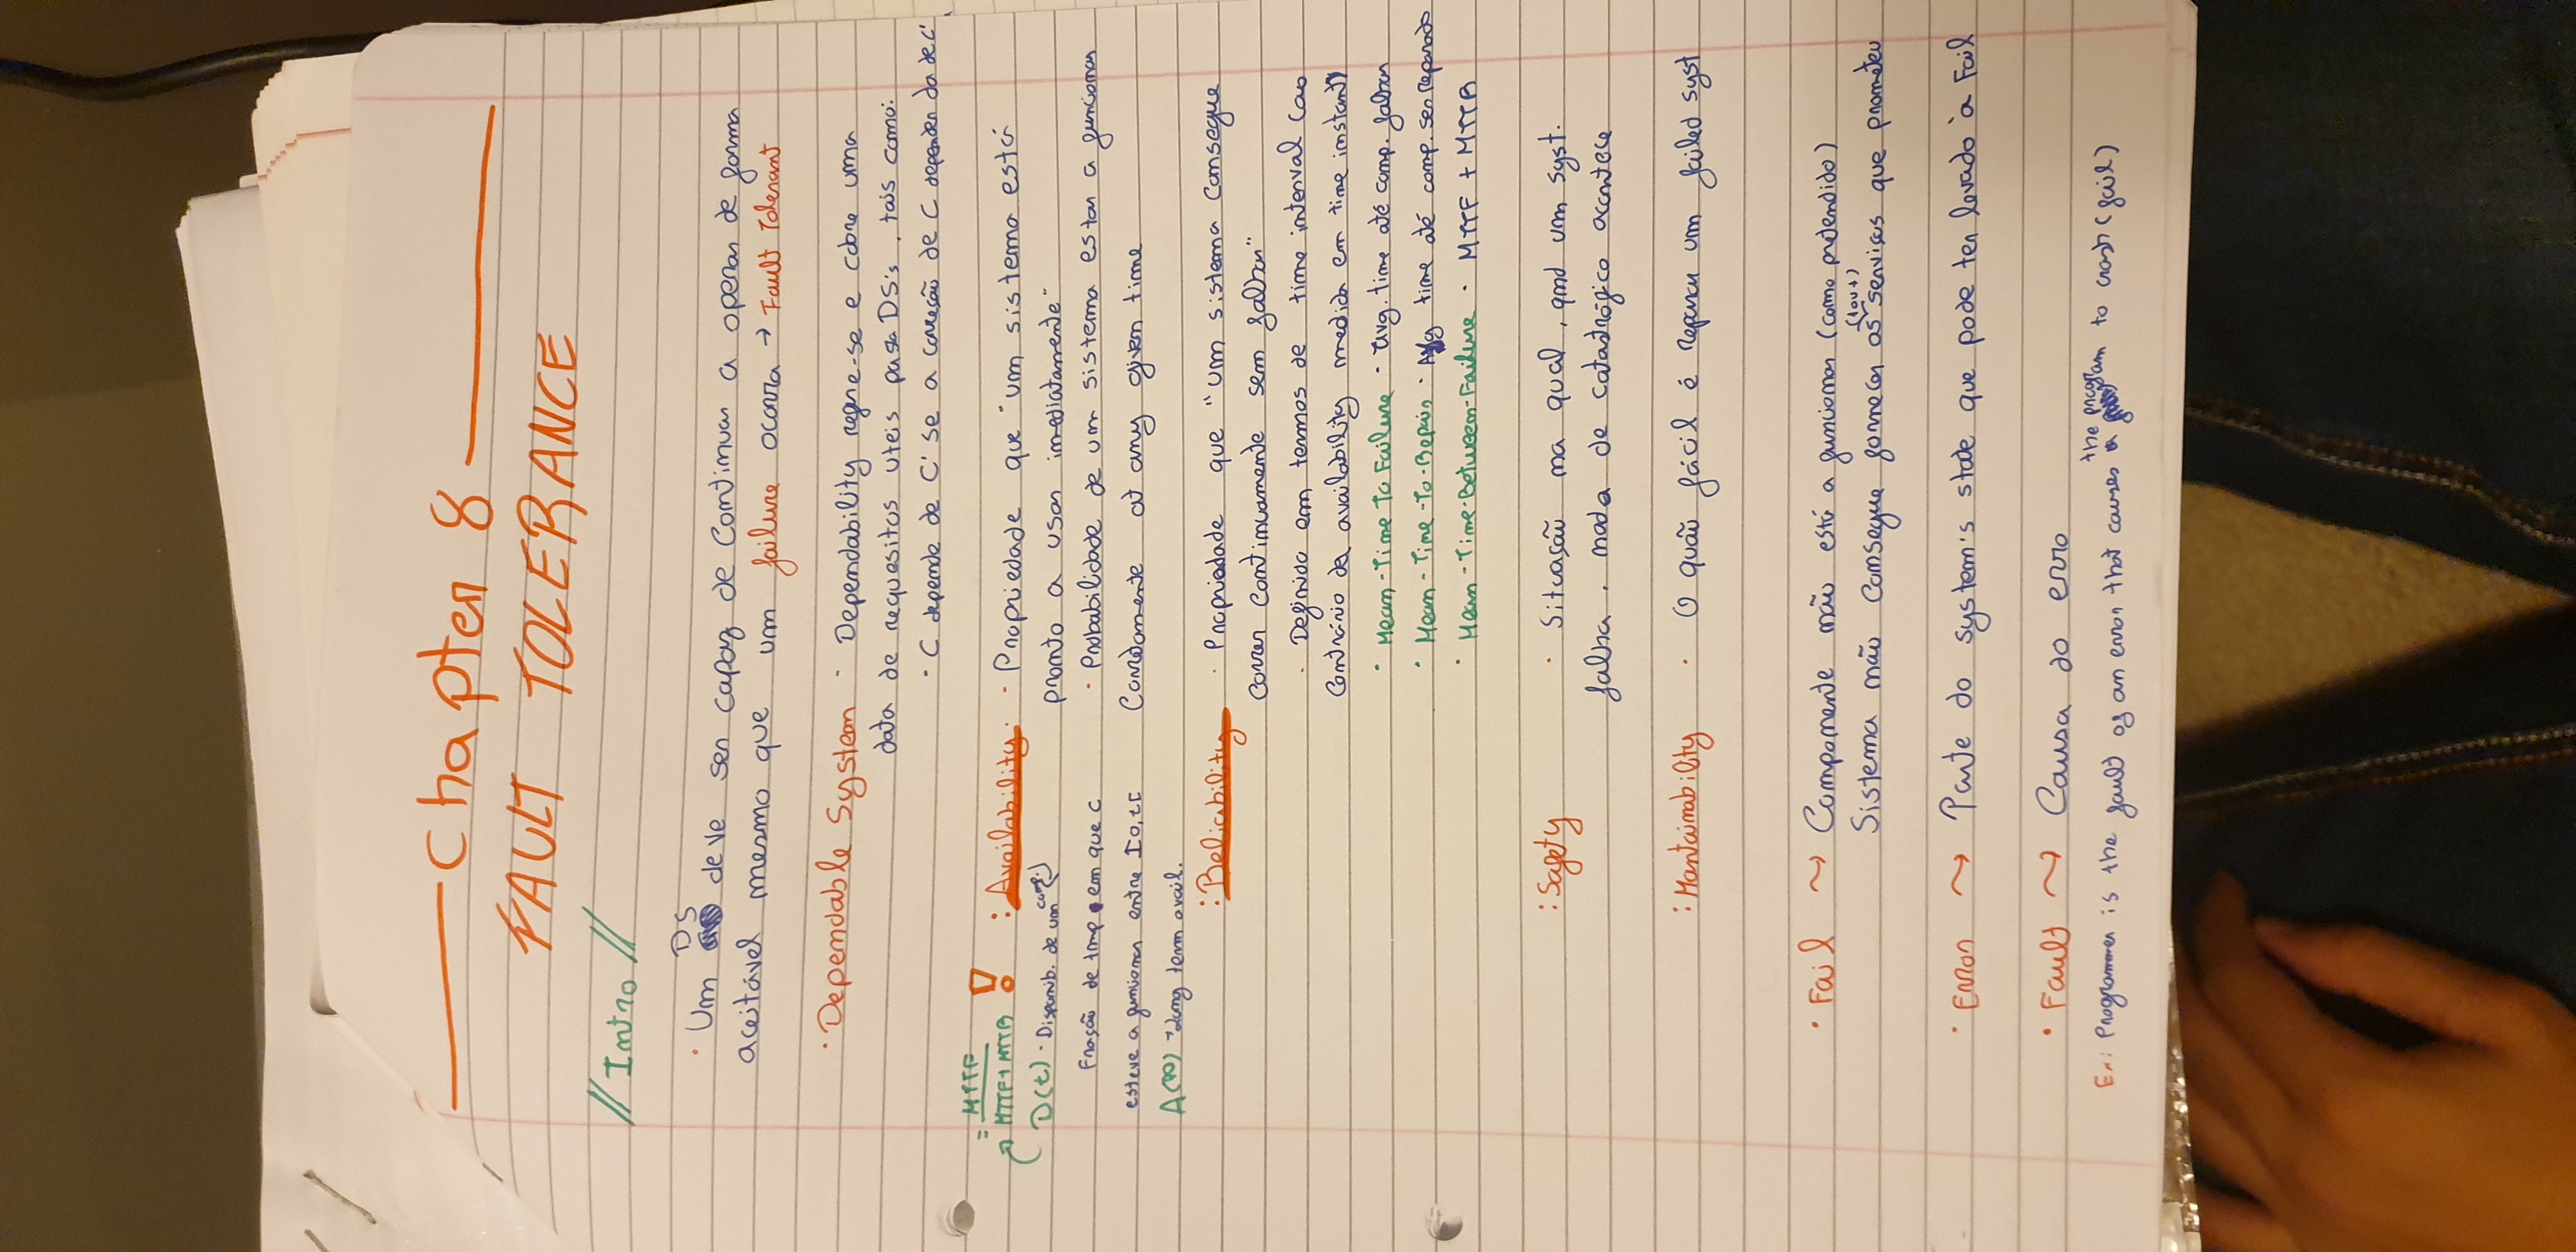 Chapter 8
FAULT TOLERANCE
// Intro //
DS
· Um deve ser capaz de continuar a operar de forma
aceitável mesmo que um failure ocorra → Fault Tolerant
· Dependable System - Dependability refere-se e cobre uma
data de requesitos uteis para DS's, tais como:
· C depende de C' se a correção de C depender da de C'
= MTTF
MTTF + MTTR ! : Availability · Propriedade que "um sistema está
D(t) · Disponib. de um comp. C pronto a usar imediatamente"
Fração de tmp em que C · Probabilidade de um sistema estar a funcionar
esteve a funcionar entre [0,t[ Corretamente at any given time
A(∞) → Long term avail.
: Reliability · Propriedade que "um sistema consegue
correr continuamente sem falhar"
· Definido em termos de time interval (ao
contrário da availability medida em time instant)
· Mean-Time To Failure · avg. time até comp. falhar
· Mean-Time-To-Repair · Avg time até comp. ser reparado
· Mean-Time-Between-Failure · MTTF + MTTR
: Safety · Situação na qual, qnd um syst.
falha, nada de catastrófico acontece
: Mantainability · O quão fácil é reparar um failed syst
· Fail ~> Componente não está a funcionar (como pretendido)
Sistema não consegue fornecer os (1 ou +) serviços que prometeu
· Error ~> Parte do system's state que pode ter levado à Fail
· Fault ~> Causa do erro
Ex: Programmer is the fault of an error that causes the program to crash (fail)